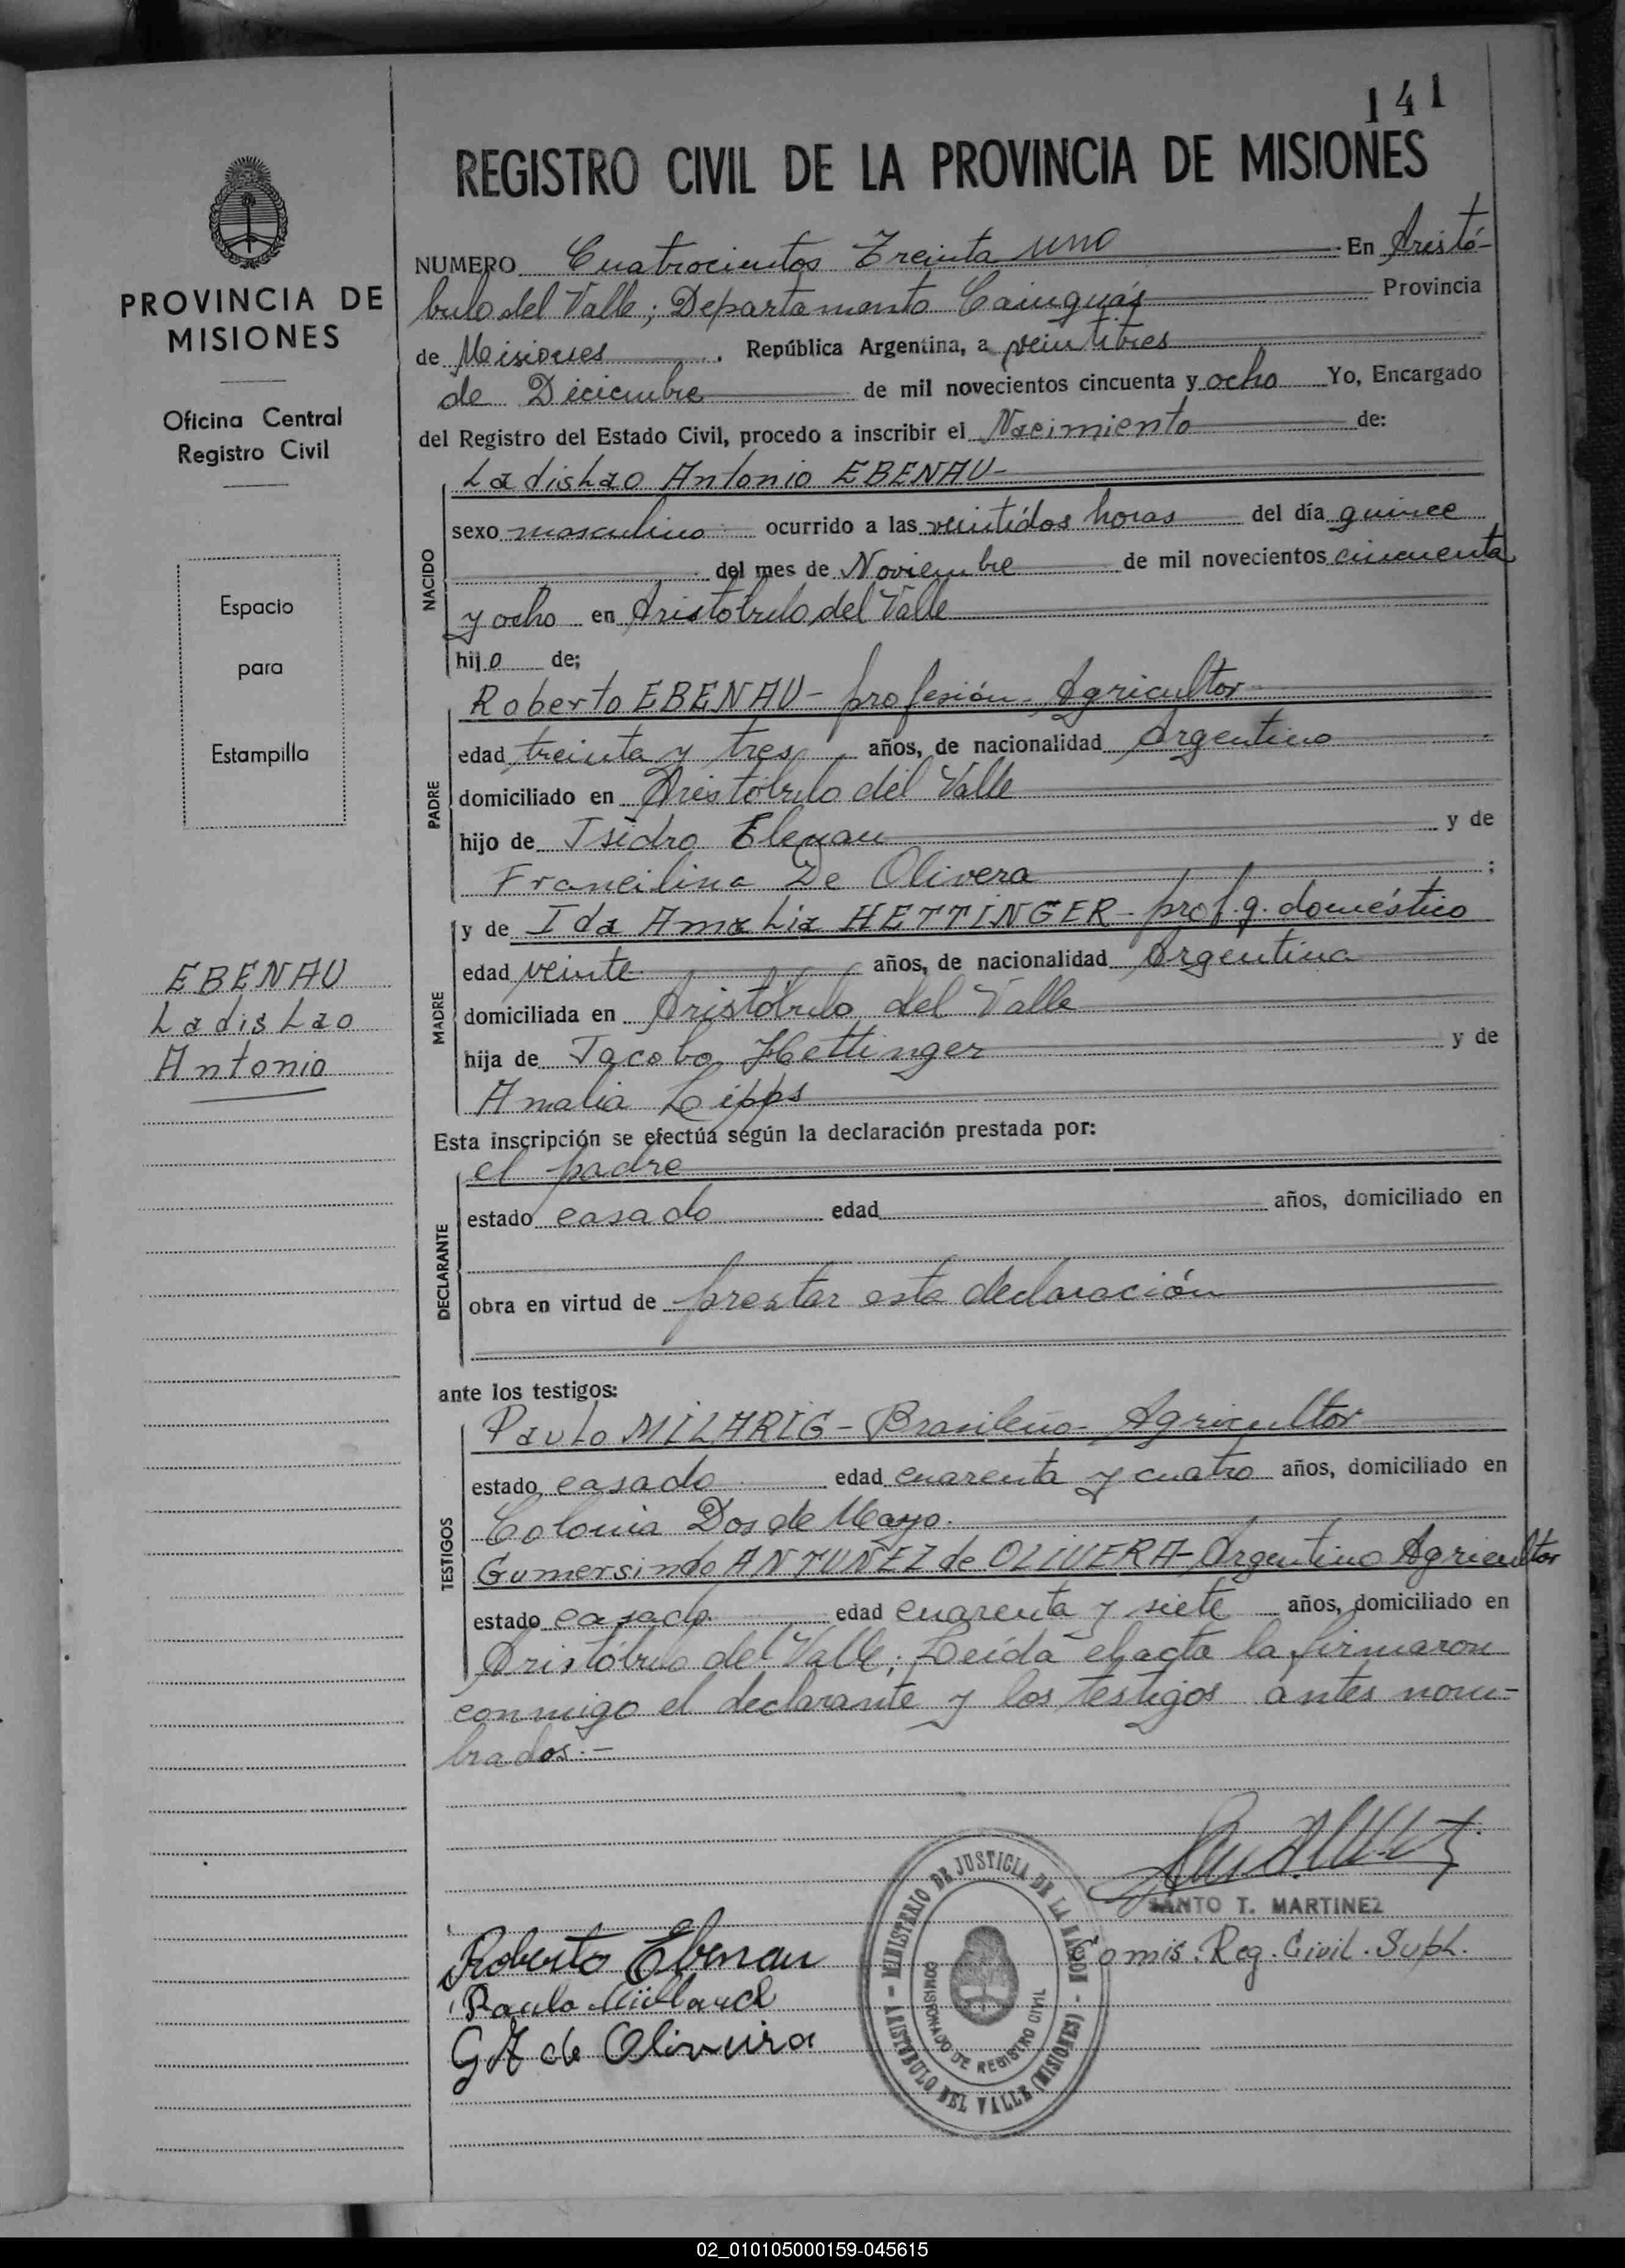 141
REGISTRO CIVIL DE LA PROVINCIA DE MISIONES
PROVINCIA DE
MISIONES
Oficina Central
Registro Civil
Espacio
para
Estampilla
EBENAU
Ladislao
Antonio
NUMERO Cuatrocientos Treinta uno En Aristó-
bulo del Valle; Departamento Cainguás Provincia
de Misiones. República Argentina, a veintitres
de Diciembre de mil novecientos cincuenta y ocho Yo, Encargado
del Registro del Estado Civil, procedo a inscribir el Nacimiento de:
NACIDO
Ladislao Antonio EBENAU-
sexo masculino ocurrido a las veintidos horas del día quince
del mes de Noviembre de mil novecientos cincuenta
y ocho en Aristóbulo del Valle
hijo de;
PADRE
Roberto EBENAU - profesión Agricultor
edad treinta y tres años, de nacionalidad Argentino
domiciliado en Aristóbulo del Valle
hijo de Isidro Elenau y de
Francilina De Olivera ;
MADRE
y de Ida Amalia HETTINGER - prof. q. doméstico
edad veinte años, de nacionalidad Argentina
domiciliada en Aristóbulo del Valle
hija de Jacobo Hettinger y de
Amalia Lipps
Esta inscripción se efectúa según la declaración prestada por:
DECLARANTE
el padre
estado casado edad años, domiciliado en
obra en virtud de prestar esta declaración
ante los testigos:
TESTIGOS
Paulo MILARIG - Brasileño - Agricultor
estado casado edad cuarenta y cuatro años, domiciliado en
Colonia Dos de Mayo.
Gumersindo ANTUÑEZ de OLIVERA - Argentino Agricultor
estado casado edad cuarenta y siete años, domiciliado en
Aristóbulo del Valle; Leída el acta la firmaron
conmigo el declarante y los testigos antes nom-
brados.-
SANTO T. MARTINEZ
Comis. Reg. Civil. Supl.
MINISTERIO DE JUSTICIA DE LA NACION - ARISTOBULO DEL VALLE (MISIONES) -
COMISIONADO DE REGISTRO CIVIL
Roberto Ebenau
Paulo
G A de Oliveira
02_010105000159-045615